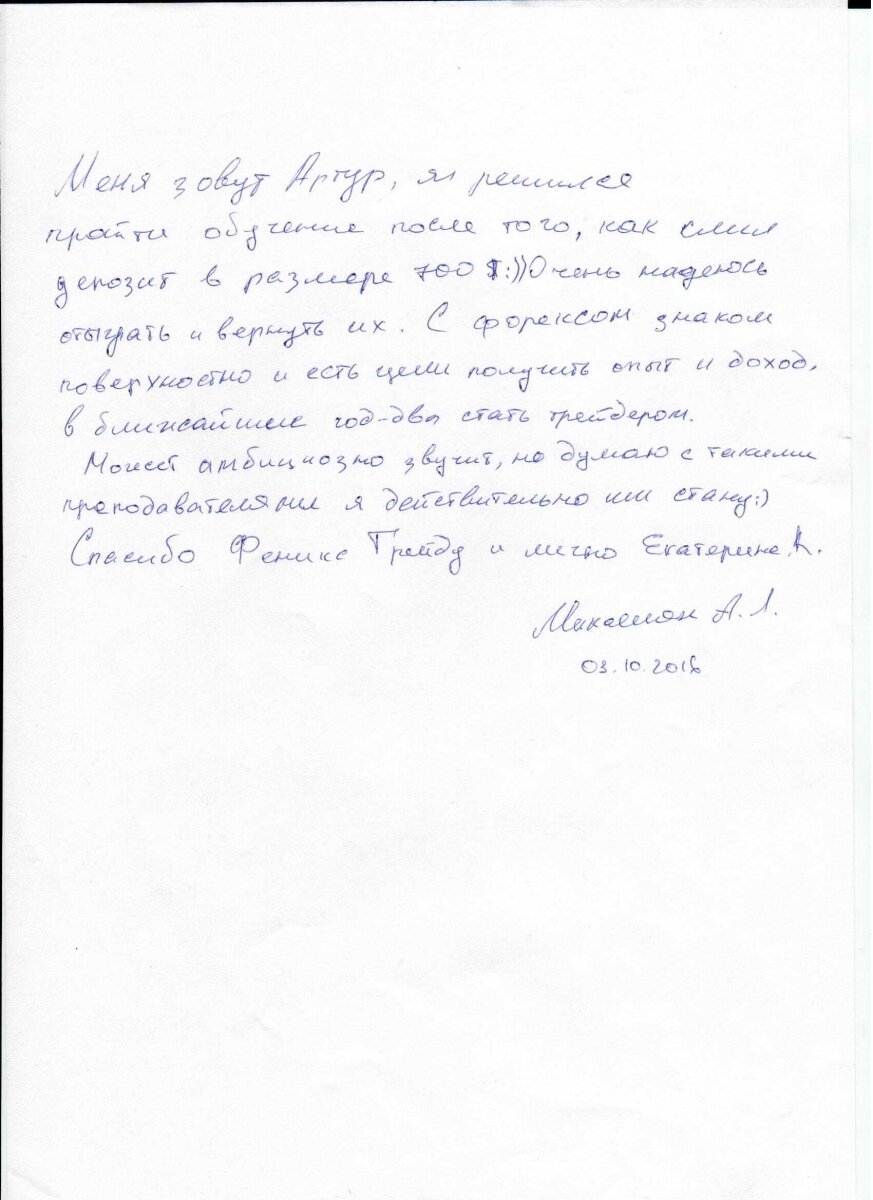 Меня зовут Артур, я решился
пройти обучение после того, как слил
депозит в размере 700 $:))Очень надеюсь
отыграть и вернуть их. С форексом знаком
поверхностно и есть цели получить опыт и доход,
в ближайшие год-два стать трейдером.
Может амбициозно звучит, но думаю с такими
преподавателями я действительно им стану:)
Спасибо Феникс Трейду и лично Екатерине К.
А. Л.
03.10.2016